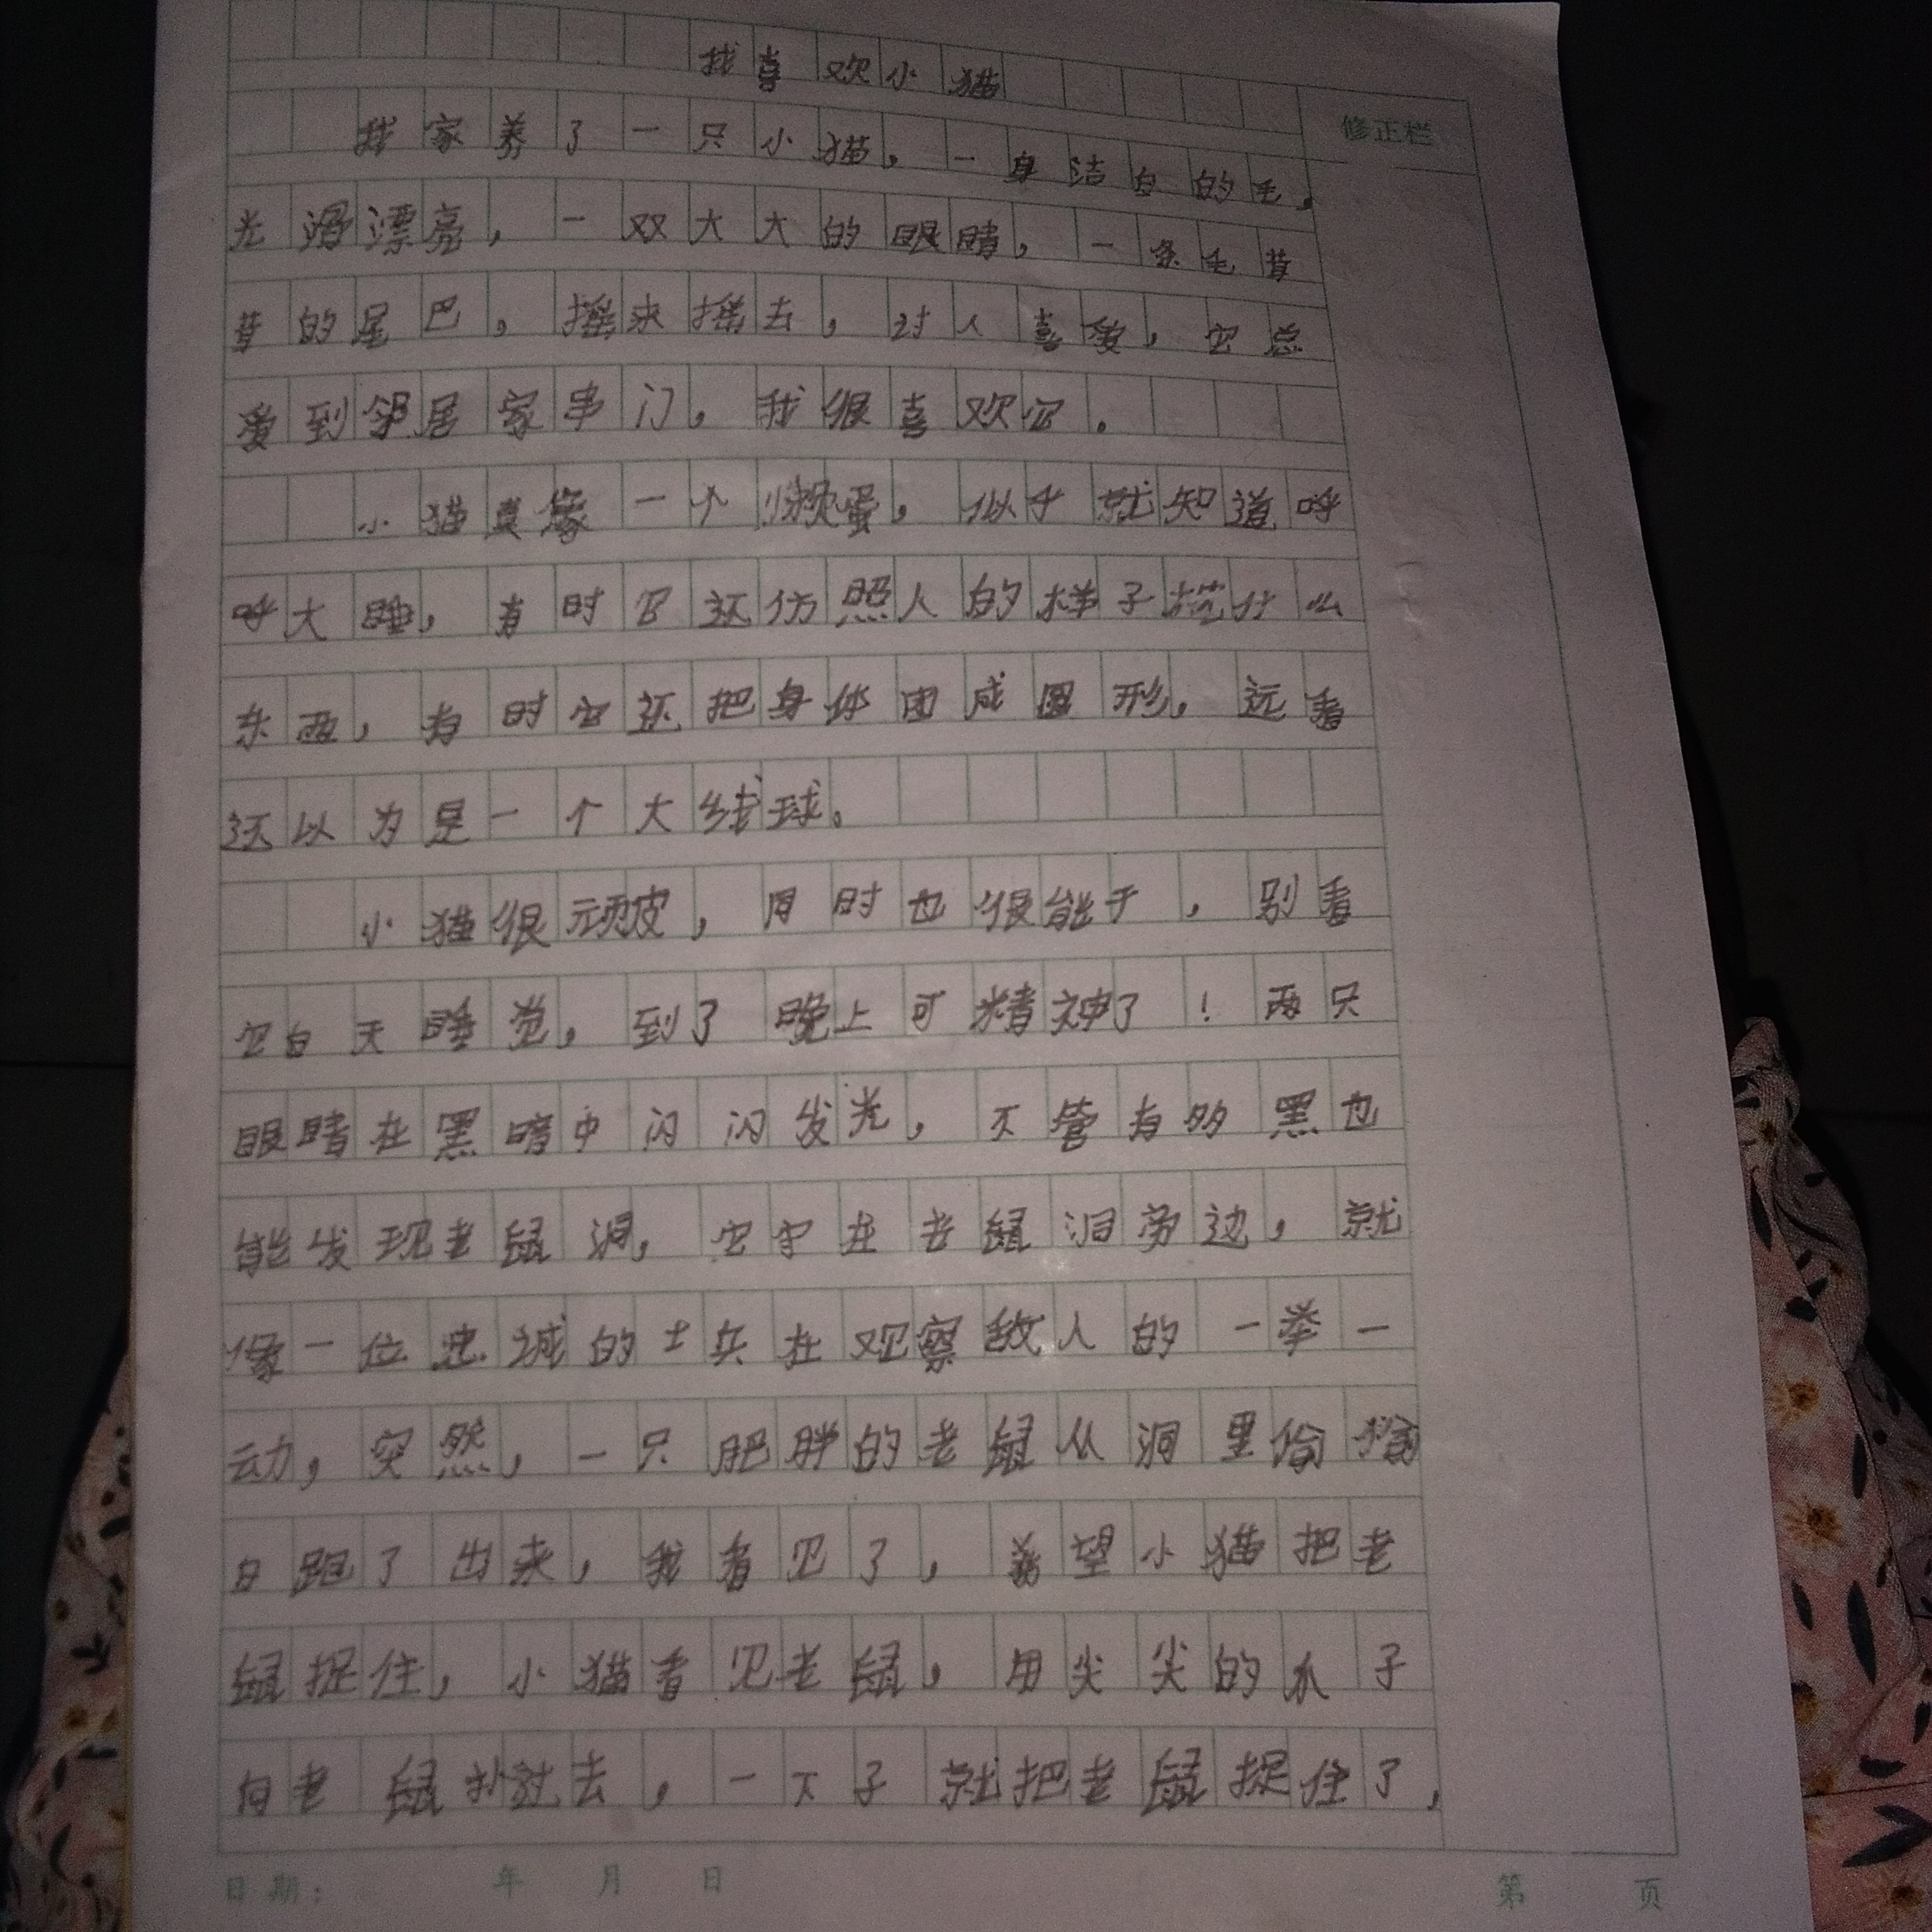 我喜欢小猫
修正栏
我家养了一只小猫，一身洁白的毛，
光滑漂亮，一双大大的眼睛，一条毛茸
茸的尾巴，摇来摇去，讨人喜爱，它总
爱到邻居家串门。我很喜欢它。
小猫真像一个懒蛋，似乎就知道呼
呼大睡，有时它还仿照人的样子挖什么
东西，有时它还把身体团成圆形，远看
还以为是一个大线球。
小猫很顽皮，同时也很能干，别看
它白天睡觉，到了晚上可精神了！两只
眼睛在黑暗中闪闪发光，不管有多黑也
能发现老鼠洞，它守在老鼠洞旁边，就
像一位忠诚的士兵在观察敌人的一举一
动，突然，一只肥胖的老鼠从洞里偷偷
日跑了出来，我看见了，希望小猫把老
鼠捉住，小猫看见老鼠，用尖尖的爪子
向老鼠扑过去，一下子就把老鼠捉住了，
日期： 年 月 日
第 页